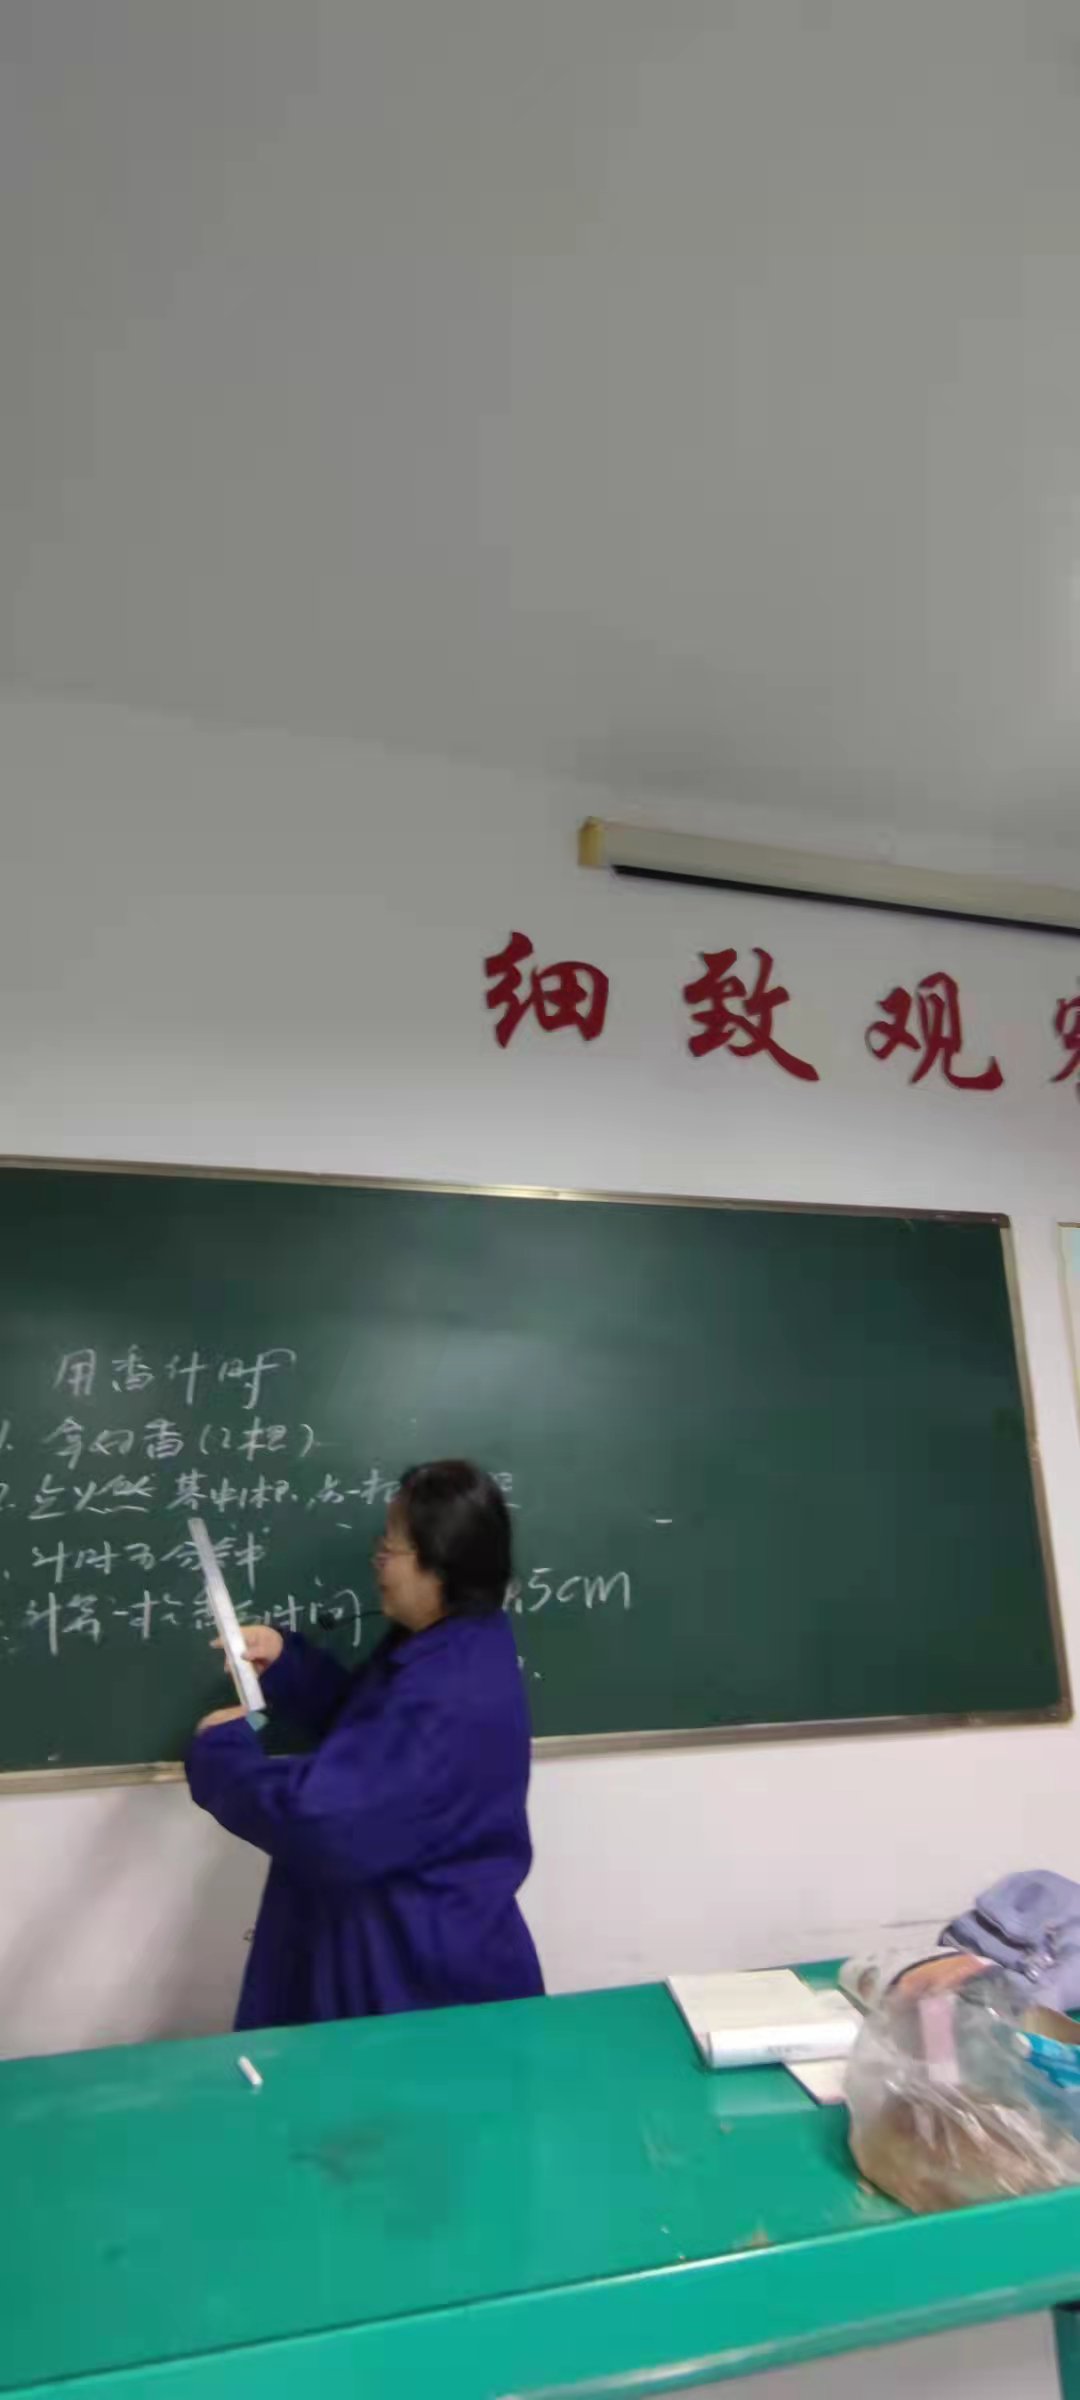 细致观察
用香计时
1. 拿出香(2根)
2. 点火燃其中1根,另一根
计时五分钟
计算一根香
时间
.5cm